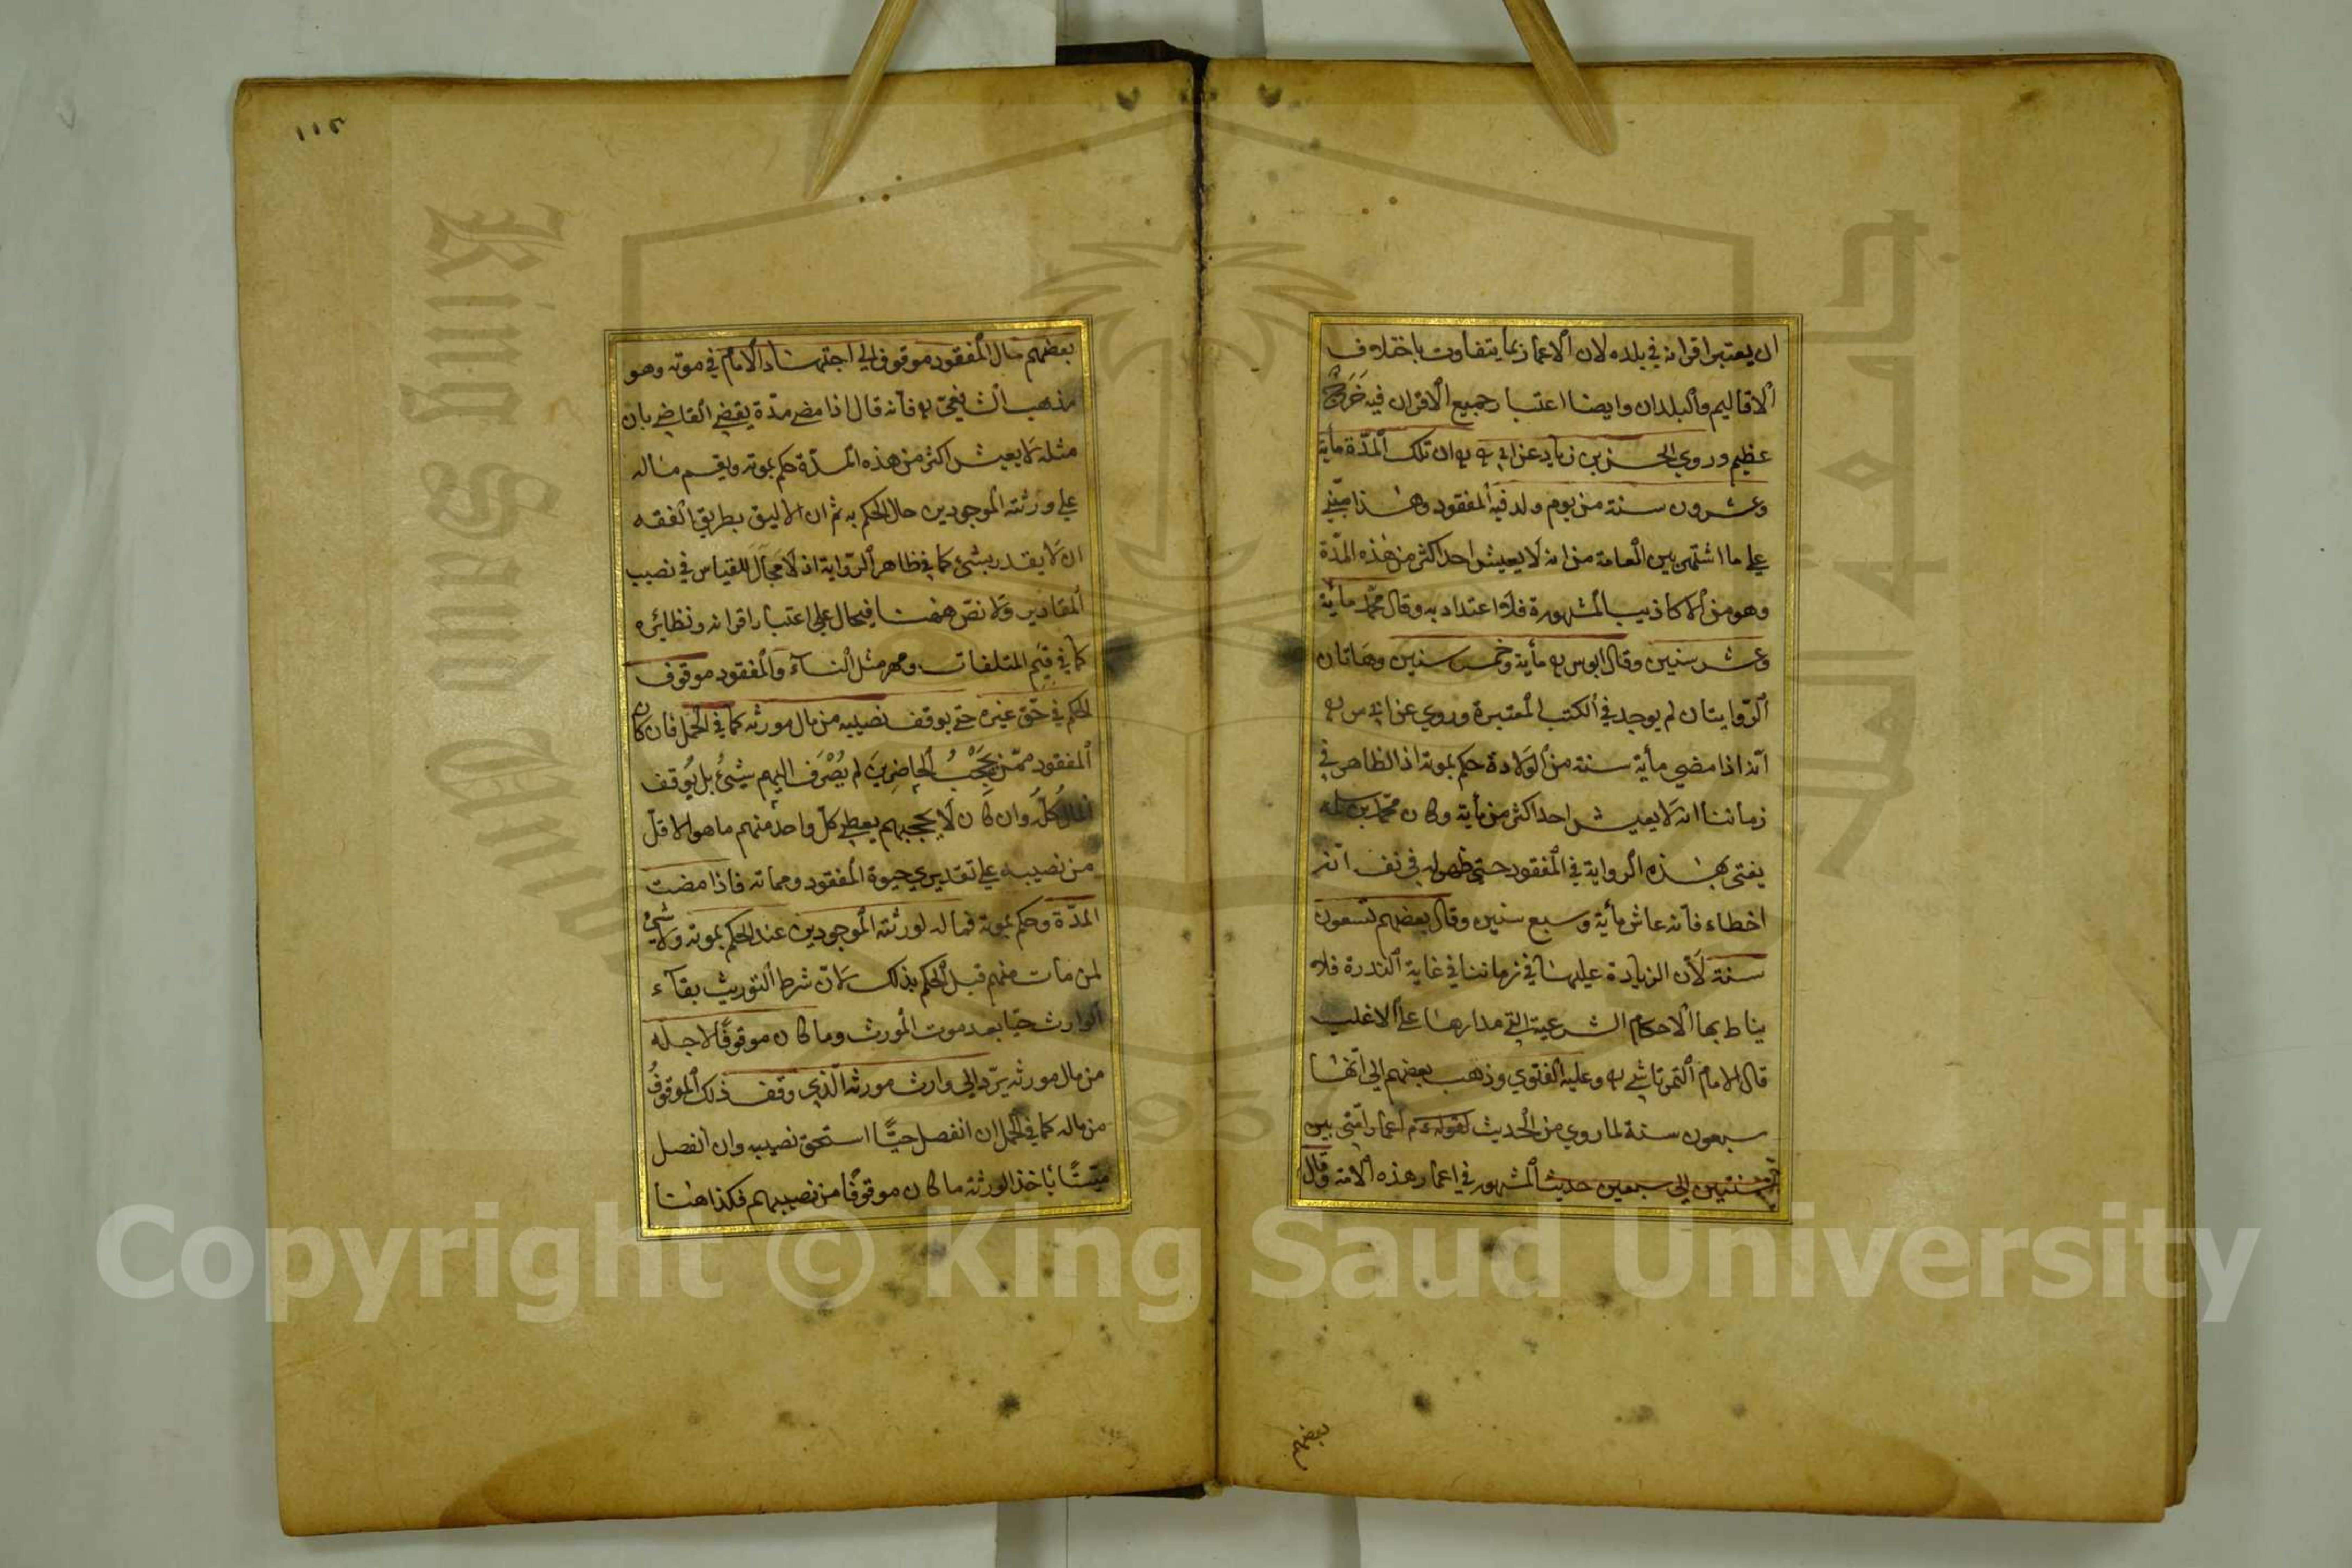 ان يعتبر اقرانه في بلده لان الاعمار نما يتفاوت باختلاف
الاقاليم والبلدان وايضا اعتبار جميع الاقران فيه حَرَجٌ
عظيم وروي الحسن بن زياد عن ابي ان تلك المدّة مأية
وعشرون سنة من يوم ولد فيه المفقود وهذا مبني
علي ما اشتهر بين العامة من انه لا يعيش احد اكثر من هذه المدّة
وهو من الاكاذيب المشهورة فلا اعتداد به وقال محمّد مأية
وعشر سنين وقال ابو س مأية وخمس سنين وهاتان
الرّوايتان لم يوجد في الكتب المعتبرة وروي عن ابي س
انّه اذا مضي مأية سنة من الولادة حكم بموته اذ الظاهر في
زماننا انه لا يعيش احد اكثر من مأية وكان محمّد بن سلمه
يفتى بهذه الرواية في المفقود حتى ظهر له في نفسه انّه
اخطاء فانّه عاش مأية وسبع سنين وقال بعضهم تسعون
سنة لأن الزيادة عليها في زماننا في غاية الندرة فلا
يناط بها الاحكام الشرعية التي مدارها على الاغلب
قال الامام التمرتاشي وعليه الفتوي وذهب بعضهم الى انّها
سبعون سنة لما روي من الحديث لقوله عم اعمار امّتى بين
ستين الي سبعين حديث المشهور في اعمار هذه الامّة وقال
بعضهم
١١٥
بعضهم مال المفقود موقوف الي اجتهاد الامام في موته وهو
مذهب الشافعيّ فانه قال اذا مضي مدّة يقضي القاضي بان
مثله لا يعيش اكثر من هذه المدّة حكم بموته ويقسم ماله
علي ورثته الموجودين حال الحكم به ثم ان الاليق بطريق الفقه
ان لا يقدر بشئ كما في ظاهر الرّواية اذ لا مجال للقياس في نصيب
المقادير ولا نصّ ههنا فيحال علي اعتبار اقرانه ونظائره
كما في قيم المتلفات ومهر مثل النساء والمفقود موقوف
الحكم في حقّ غيره حتي يوقف نصيبه من مال مورثه كما في الحمل فان كان
المفقود ممّن يَحْجُبُ الحاضِرِينَ لم يُصْرَف اليهم شيئٌ بل يُوقف
المالُ كلُّه وان كان لا يحجبهم يعطي كلّ واحد منهم ما هو الاقلّ
من نصيبه علي تقديري حيوة المفقود ومماته فاذا مضت
المدّة وحكم بموته فماله لورثته الموجودين عند الحكم بموته ولا شئ
لمن مات منهم قبل الحكم بذلك لانّ شرط التوريث بقآء
الوارث حيّا بعد موت المورث وما كان موقوفًا لاجله
من مال مورثه يردّ الي وارث مورثه الّذي وقف ذلك الموقوفُ
من ماله كما في الحمل ان انفصل حيًّا استحق نصيبه وان انفصل
ميّتًا يأخذ الورثة ما كان موقوفًا من نصيبهم فكذا هنا
King Saud University
1957
Copyright © King Saud University